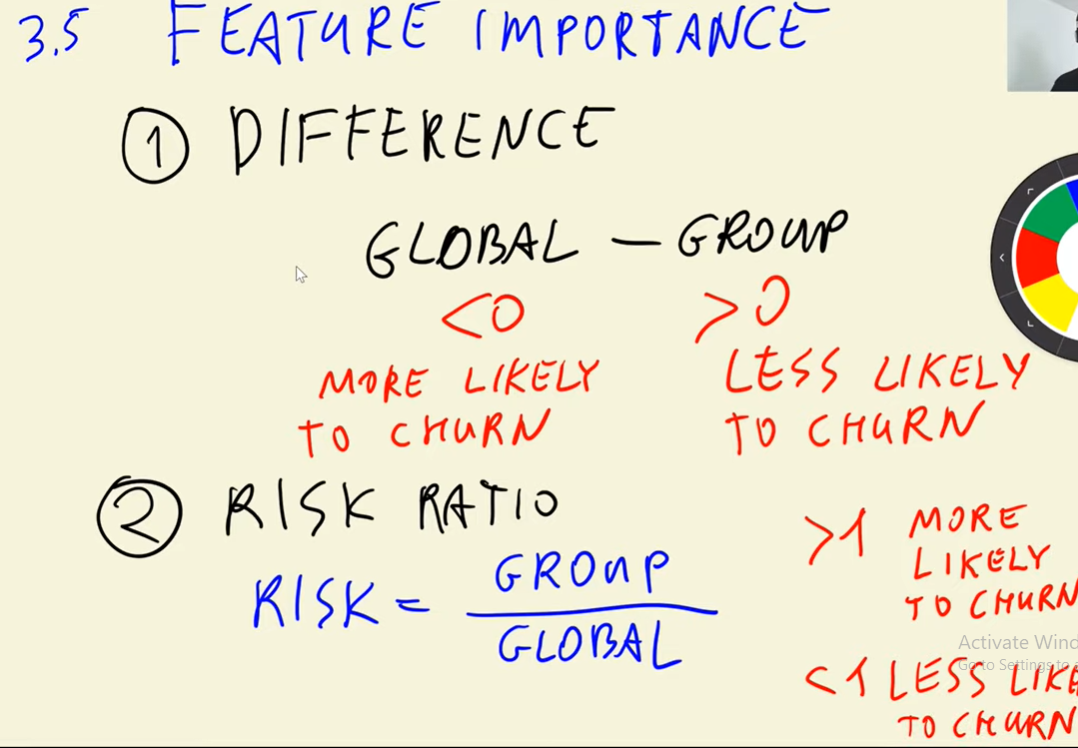 3.5 FEATURE IMPORTANCE
① DIFFERENCE
GLOBAL — GROUP
<0 >0
MORE LIKELY LESS LIKELY
TO CHURN TO CHURN
② RISK RATIO
>1 MORE
LIKELY
TO CHURN
RISK = GROUP
GLOBAL
Activate Wind
Go to Settings to a
<1 LESS LIKE
TO CHURN